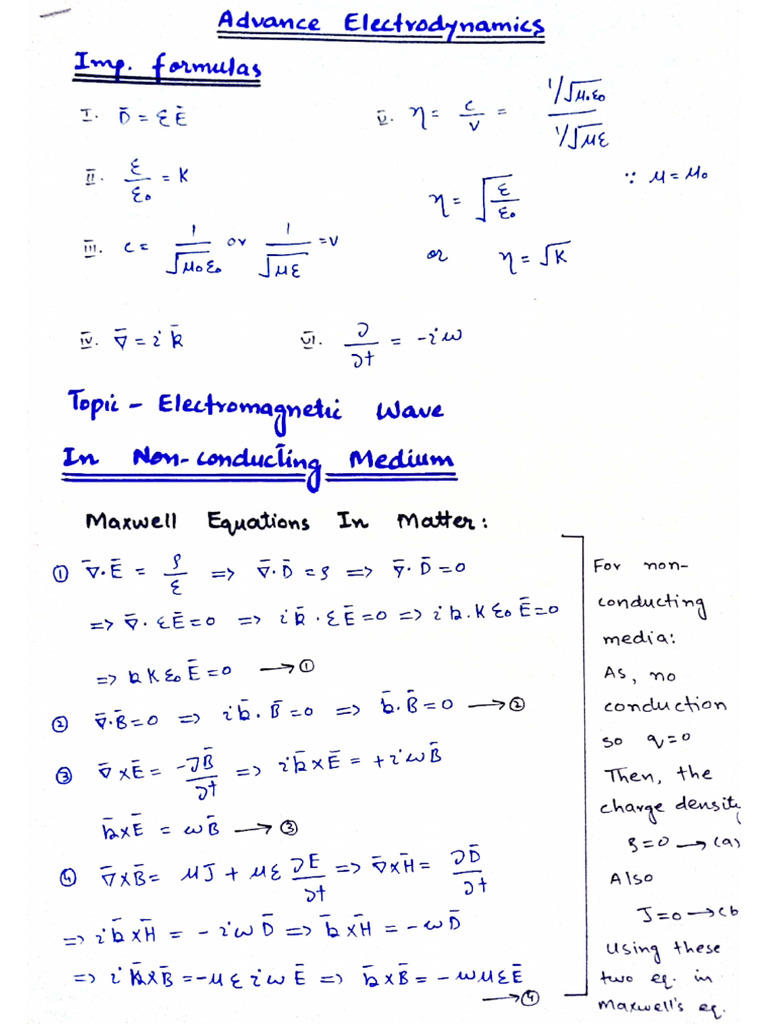 Advance Electrodynamics
Imp. formulas
I. D̄ = εĒ
II. ε/ε₀ = K
III. c = 1/√μ₀ε₀ or 1/√με = v
IV. ∇̄ = i k̄
V. η = c/v = (1/√μ₀ε₀)/(1/√με)
η = √(ε/ε₀) ∵ μ = μ₀
or η = √K
VI. ∂/∂t = -iω
Topic - Electromagnetic Wave
In Non-conducting Medium
Maxwell Equations In Matter:
① ∇̄·Ē = ρ/ε => ∇̄·D̄ = ρ => ∇̄·D̄ = 0
=> ∇̄·εĒ = 0 => i k̄·εĒ = 0 => i k.K ε₀Ē = 0
=> k K ε₀ Ē = 0 → ①
② ∇̄·B̄ = 0 => i k̄·B̄ = 0 => k̄·B̄ = 0 → ②
③ ∇̄ x Ē = -∂B̄/∂t => i k̄ x Ē = + i ω B̄
k̄ x Ē = ω B̄ → ③
④ ∇̄ x B̄ = μJ + με ∂E/∂t => ∇̄ x H̄ = ∂D̄/∂t
=> i k̄ x H̄ = - i ω D̄ => k̄ x H̄ = - ω D̄
=> i k̄ x B̄ = - μ ε i ω Ē => k̄ x B̄ = - ω μ ε Ē
→ ④
For non-
conducting
media:
As, no
conduction
so q = 0
Then, the
charge density
ρ = 0 → (a)
Also
J = 0 → (b
Using these
two eq. in
Maxwell's eq.